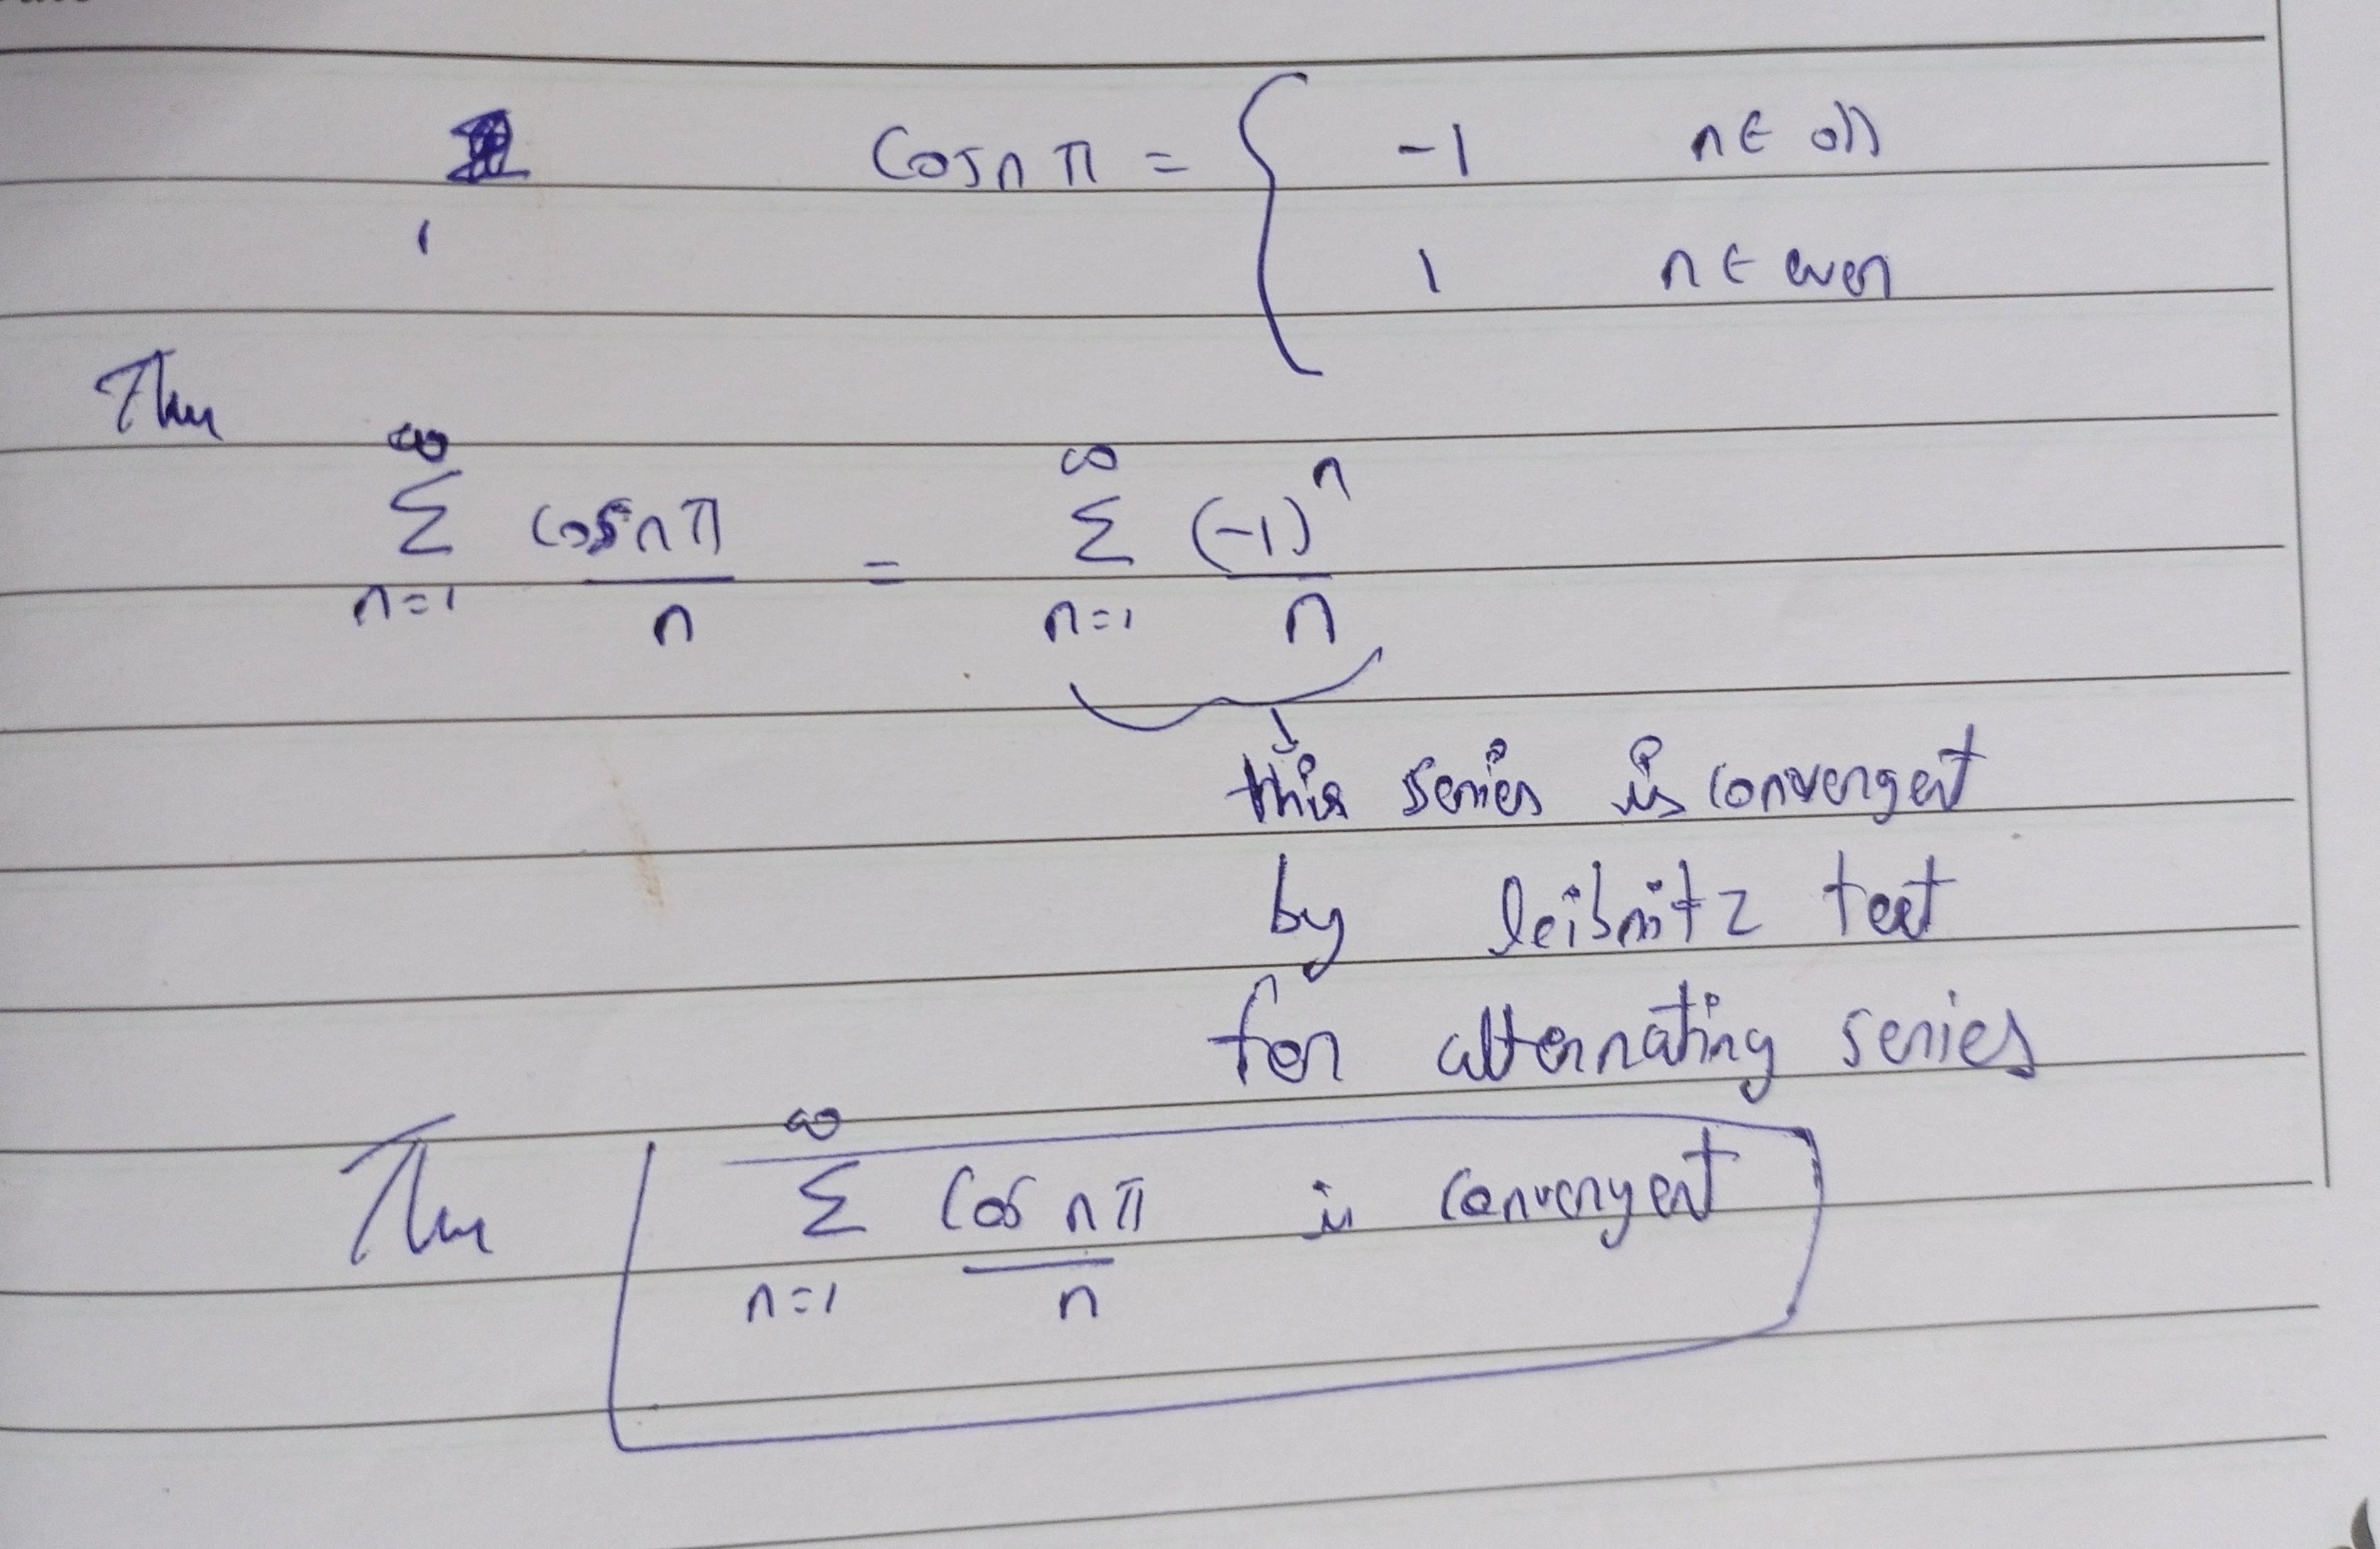 cos nπ = { -1 n ∈ odd
1 n ∈ even
Thus
∞ Σ n=1 cos nπ / n = ∞ Σ n=1 (-1)^n / n
this series is convergent
by leibnitz test
for alternating series
Thus ∞ Σ n=1 cos nπ / n is convergent